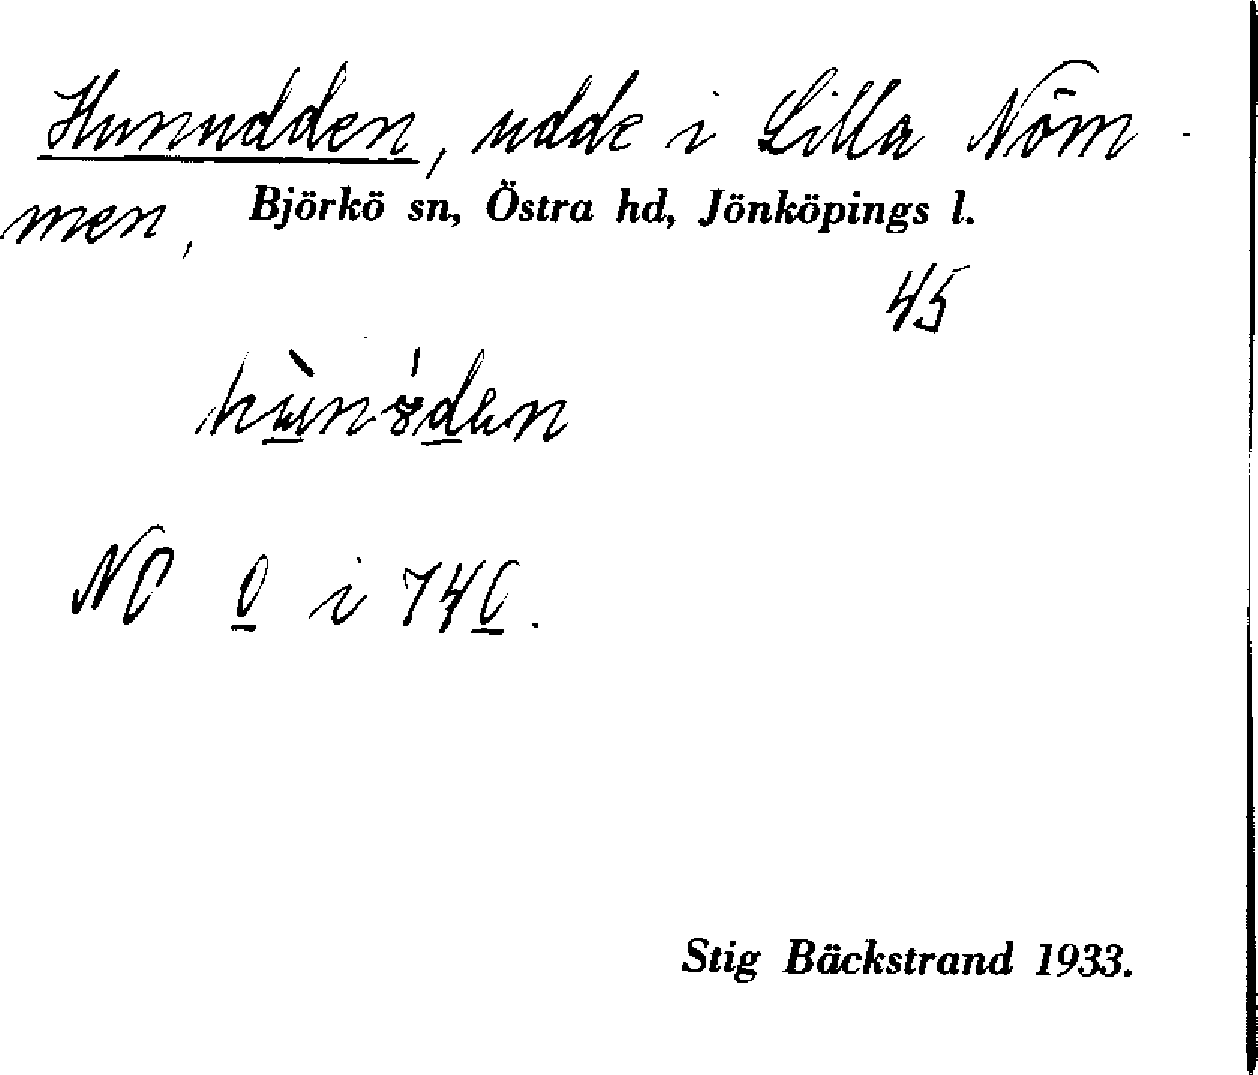 Hunudden, udde i Lilla Nöm-
men, Björkö sn, Östra hd, Jönköpings l.
45
NO 0 i 740.
Stig Bäckstrand 1933.